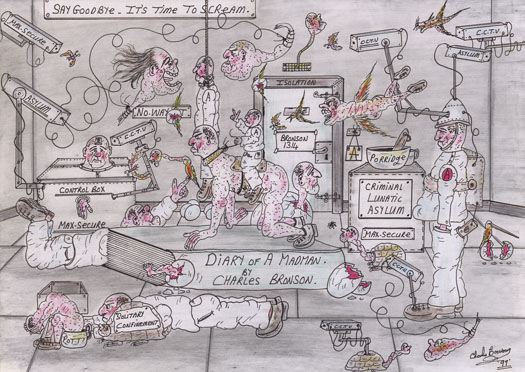 SAY GOODBYE. IT'S TIME TO SCREAM.
MAX-SECURE
ASYLUM
NO-WAY
C.C.T.V
CONTROL BOX
MAX-SECURE
ISOLATION
BRONSON
1314
A
C.C.T.V
C.C.T.V
ASYLUM
PORRIDGE
CRIMINAL
LUNATIC
ASYLUM
MAX-SECURE
C.C.T.V
DIARY OF A MADMAN.
BY
CHARLES BRONSON.
POTTY
SOLITARY
CONFINEMENT
C.C.T.V
Charles Bronson